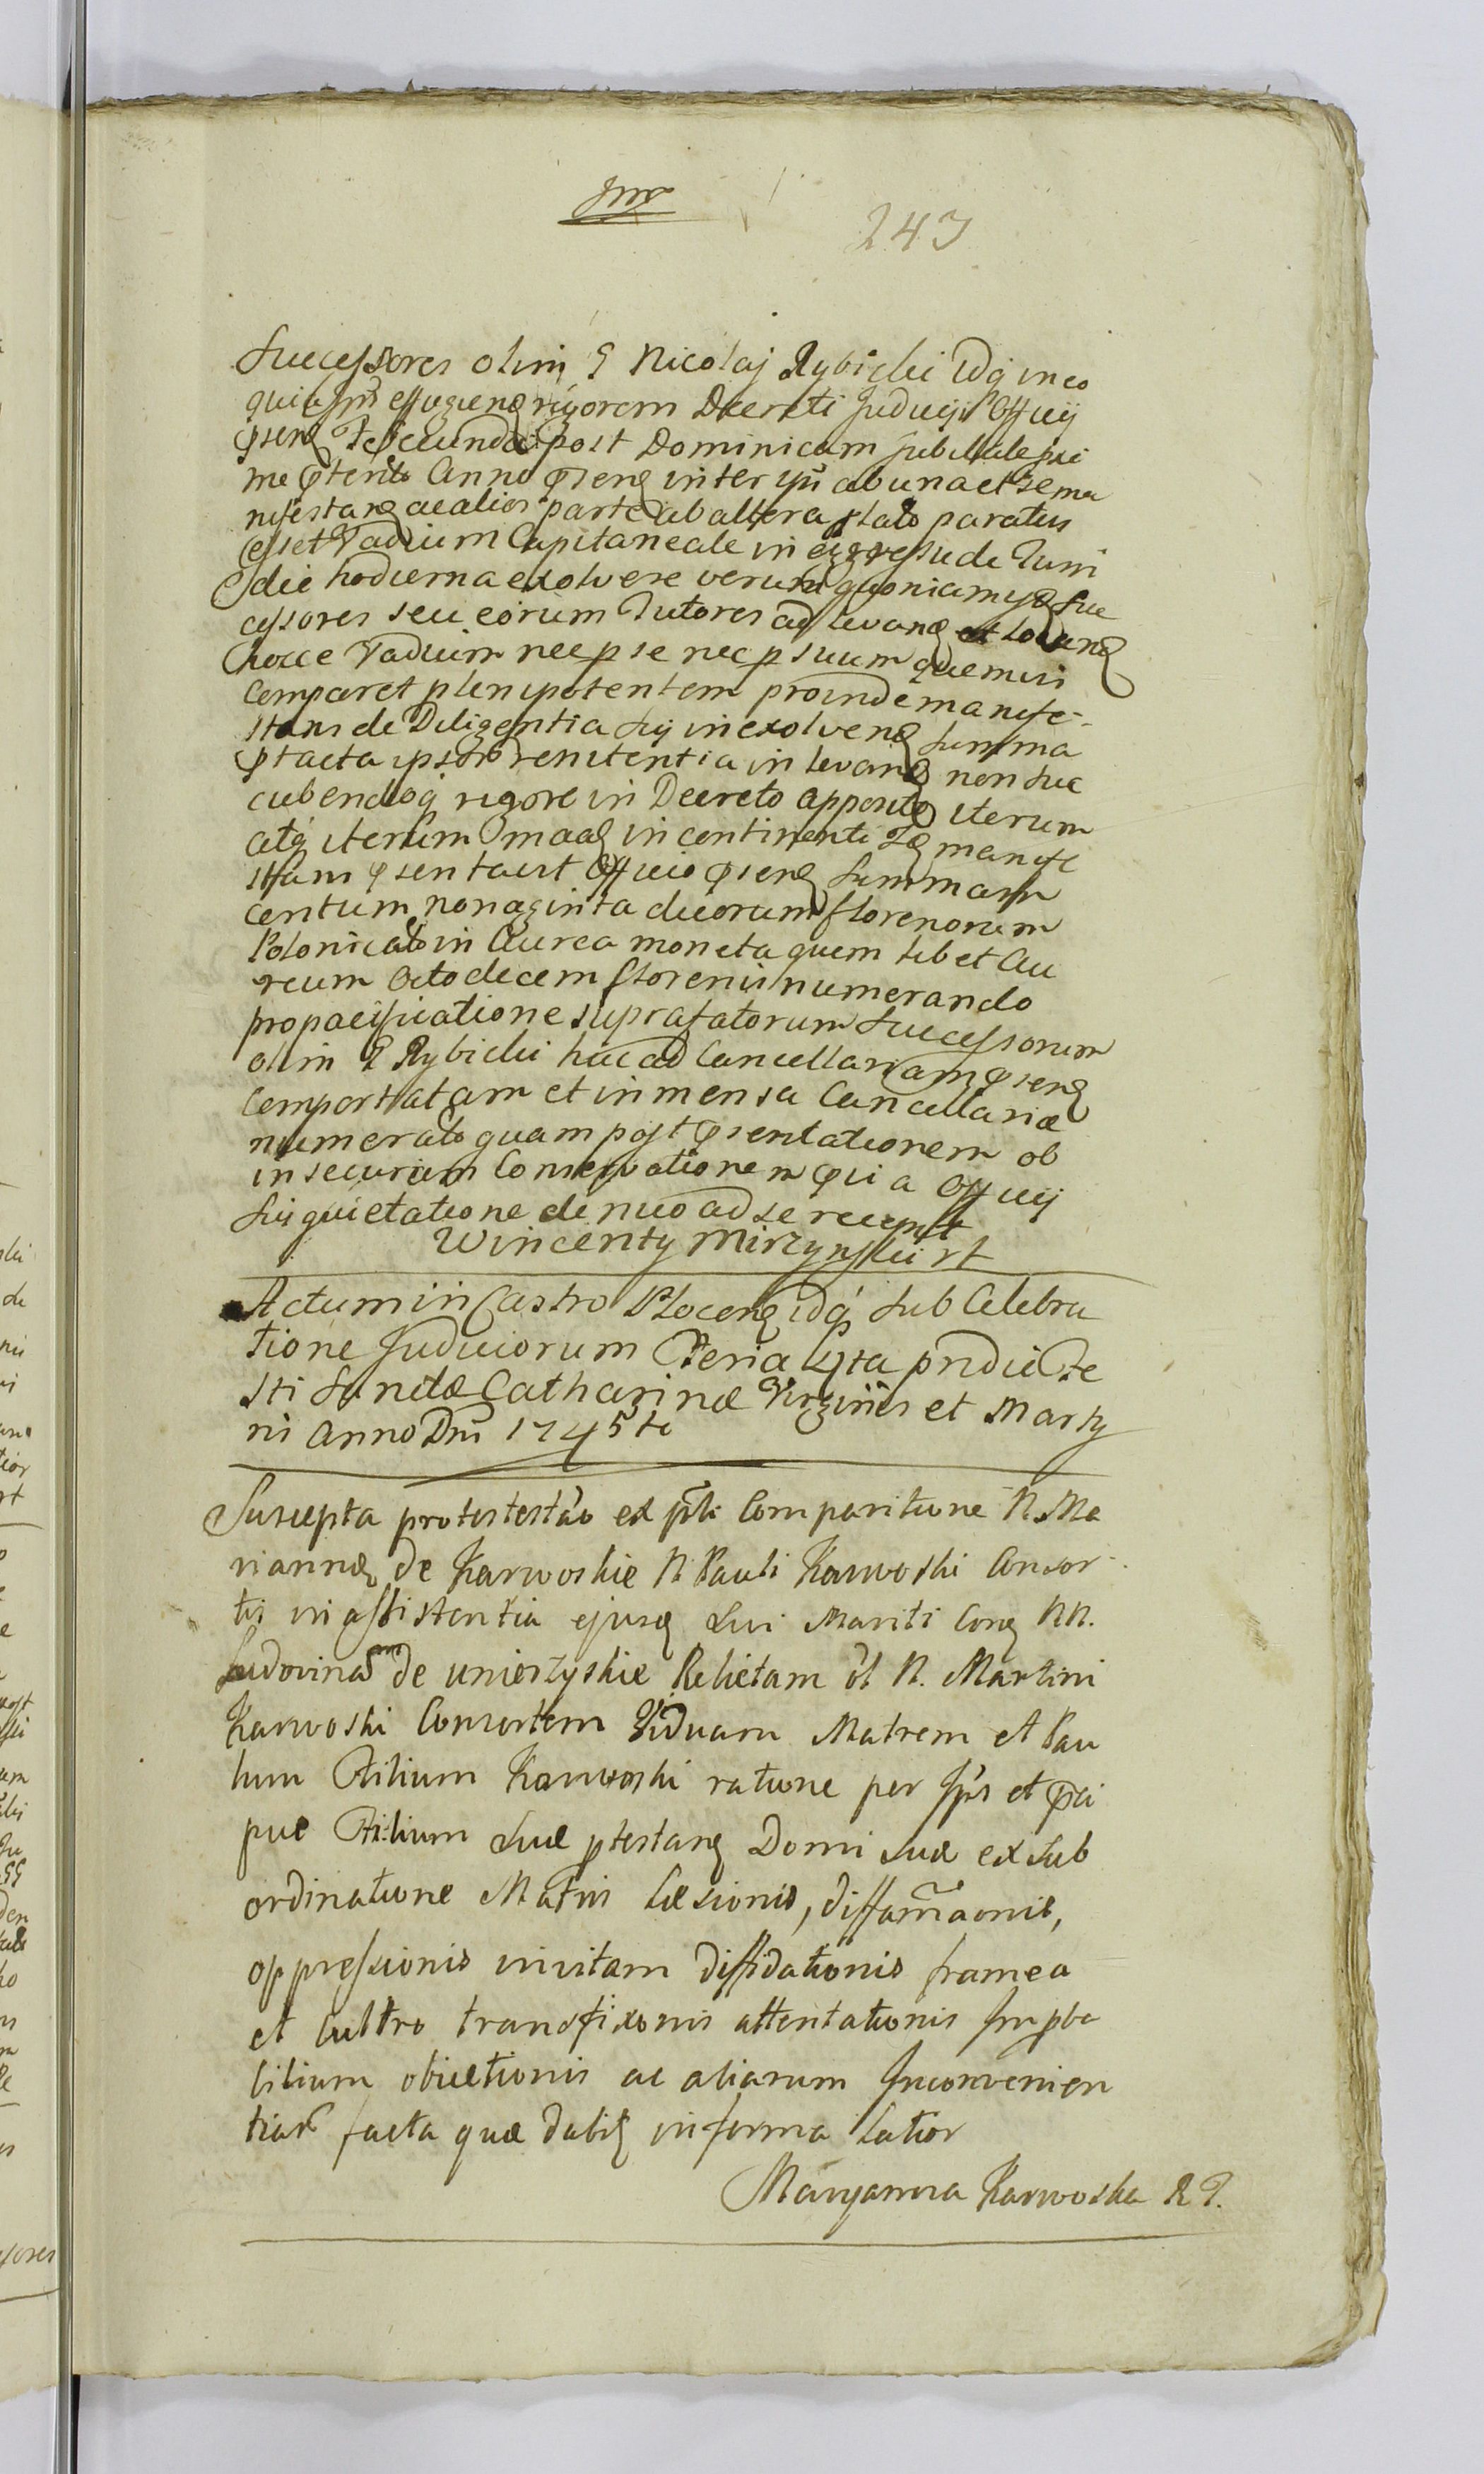 243
Successores olim G Nicolaj Rybicki Idq in eo
quia ipse effugiens rigorem Decreti Judicij Officij
psens Fr Secunda post Dominicam Jubilate pxi
me pterito Anno psens inter ipsu ab una et se ma
nifestans ac alios parte ab altera stato paratus
esset Vadium Capitaneale in egressu de Turri
die hodierna exolvere verum quoniam ijd Suc
cessores seu eorum Tutores ad levand et
hocce Vadium nec p se nec p suum quemvis
Comparet plenipotentem proinde manife-
stans de Diligentia sui in exolvend Summa
ptacta ipsor renitentia in levand non suc
cubendoq rigore in Decreto apposito iterum
atq iterum in continenti Id manife
stans psentavit Officio psens Summam
Centum nonaginta duorum florenorum
Polonical in Aurea moneta quem libet Au
reum Octodecem florenis numerando
pro pacificatione suprafatorum Successorum
olim G Rybicki huc ad Cancellariam psens
Comportatam et in mensa Cancellariæ
numerato quam post psentationem ob
in securam Conservationem Officij
sui quietatione denuo ad se recepit
Wincenty Mirzynski rt
Actum in Castro Plocens idq sub Celebra
tione Judiciorum Feria 4ta pridie Fe
sti Sanctæ Catharinæ Virginis et Marty
ris Anno Dni 1745to
Suscepta protestestao ex psti Comparitione N. Ma
riannæ de Karwoskie N Pauli Karwoski Consor-
tis in assistentia ejusd sui Mariti Cora NN.
Ludovinam de uniestyskie Relictam ol N. Martini
Karwoski Consortem Viduam Matrem et Pau
lum Filium Karwoski ratione per Ips et pci
pue Filium suæ ptestans Domi suæ ex sub
ordinatione Matris læsionis, diffamaonis,
oppressionis in vitam diffidationis framea
et cultro transfixionis attentationis Impba
bilium obiectionis ac aliarum Inconvenien
tiar facta quæ dabit in forma latior
Maryanna Karwoska R P.